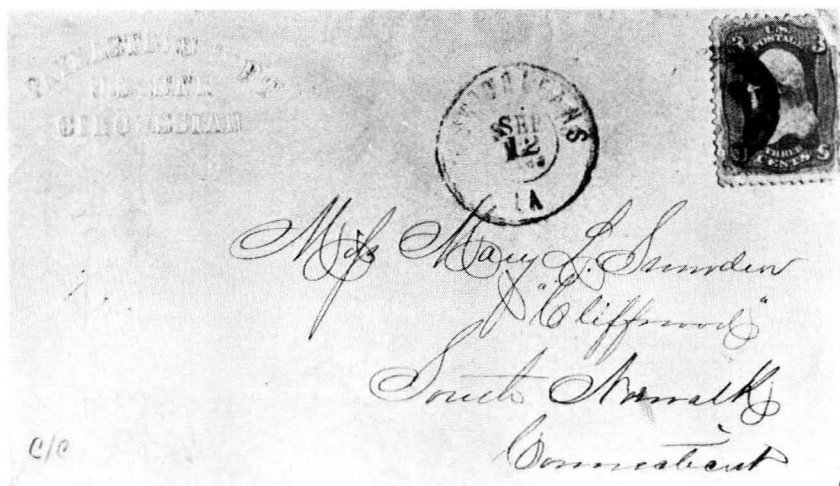 CIRCASSIAN
NEW ORLEANS
SEP
12
LA
U.S.
POSTAGE
3 3
THREE
CENTS
Miss Mary L.
"Cliffwood"
South Norwalk
Connecticut
C/C